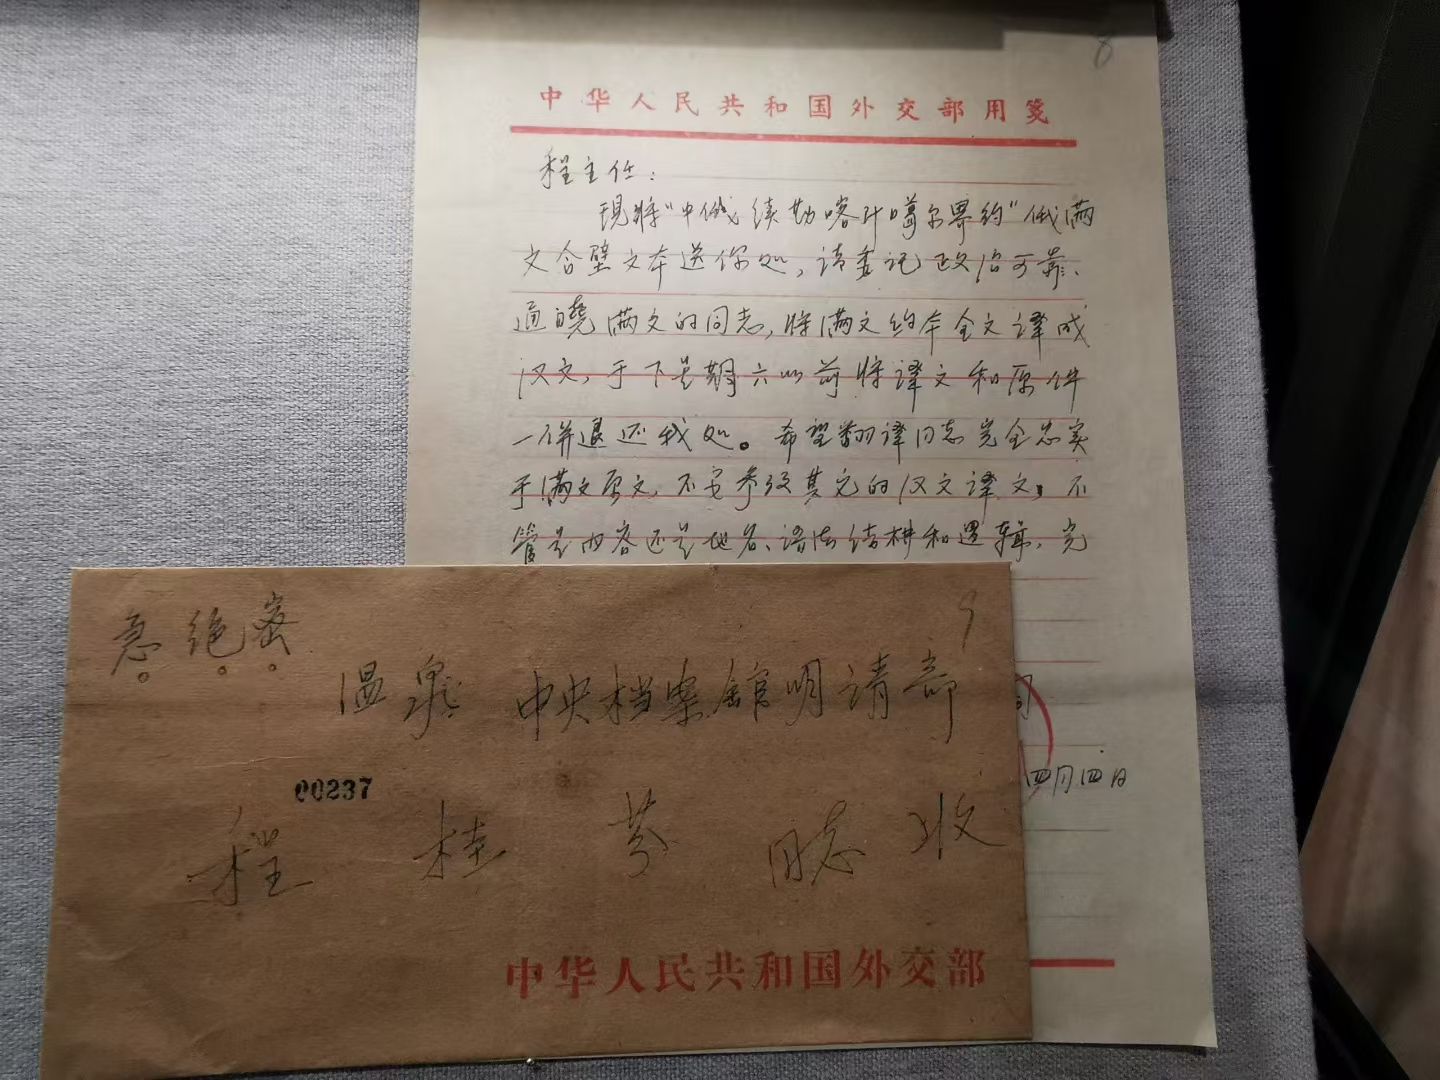 8
中华人民共和国外交部用笺
程主任：
现将“中俄续勘喀什噶尔界约”俄满
文合璧文本送你处，请委托政治可靠、
通晓满文的同志，将满文约本全文译成
汉文，于下星期六以前将译文和原件
一併退还我处。希望翻译同志完全忠实
于满文原文，不要参考其它的汉文译文。不
管是内容还是地名、语法结构和逻辑，完
司
四月四日
9
急 绝密
温泉 中央档案馆明清部
00237
程桂芬同志收
中华人民共和国外交部